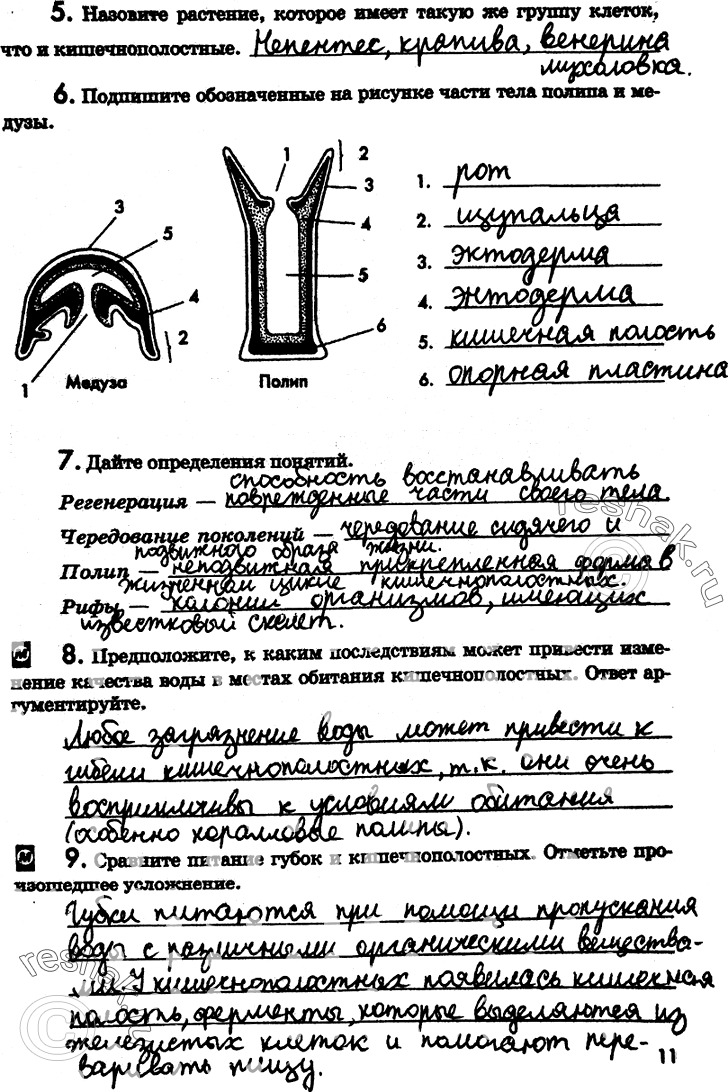 5. Назовите растение, которое имеет такую же группу клеток,
что и кишечнополостные. Непентес, крапива, венерина
мухоловка.
6. Подпишите обозначенные на рисунке части тела полипа и ме-
дузы.
3
5
4
2
1
Медуза
1
2
3
4
5
6
Полип
1. рот
2. щупальца
3. эктодерма
4. энтодерма
5. кишечная полость
6. опорная пластина
7. Дайте определения понятий.
способность восстанавливать
Регенерация — поврежденные части своего тела.
Чередование поколений — чередование сидячего и
подвижного образа жизни.
Полип — неподвижная прикрепленная форма в
жизненном цикле кишечнополостных.
Рифы — колонии организмов, имеющих
известковый скелет.
8. Предположите, к каким последствиям может привести изме-
нение качества воды в местах обитания кишечнополостных. Ответ ар-
гументируйте.
Любое загрязнение воды может привести к
гибели кишечнополостных, т.к. они очень
восприимчивы к условиям обитания
(особенно коралловые полипы).
9. Сравните питание губок и кишечнополостных. Отметьте про-
изошедшее усложнение.
Губки питаются при помощи пропускания
воды с различными органическими вещества-
ми. У кишечнополостных появилась кишечная
полость, ферменты, которые выделяются из
железистых клеток и помогают пере-
варивать пищу.
11
resheak.ru